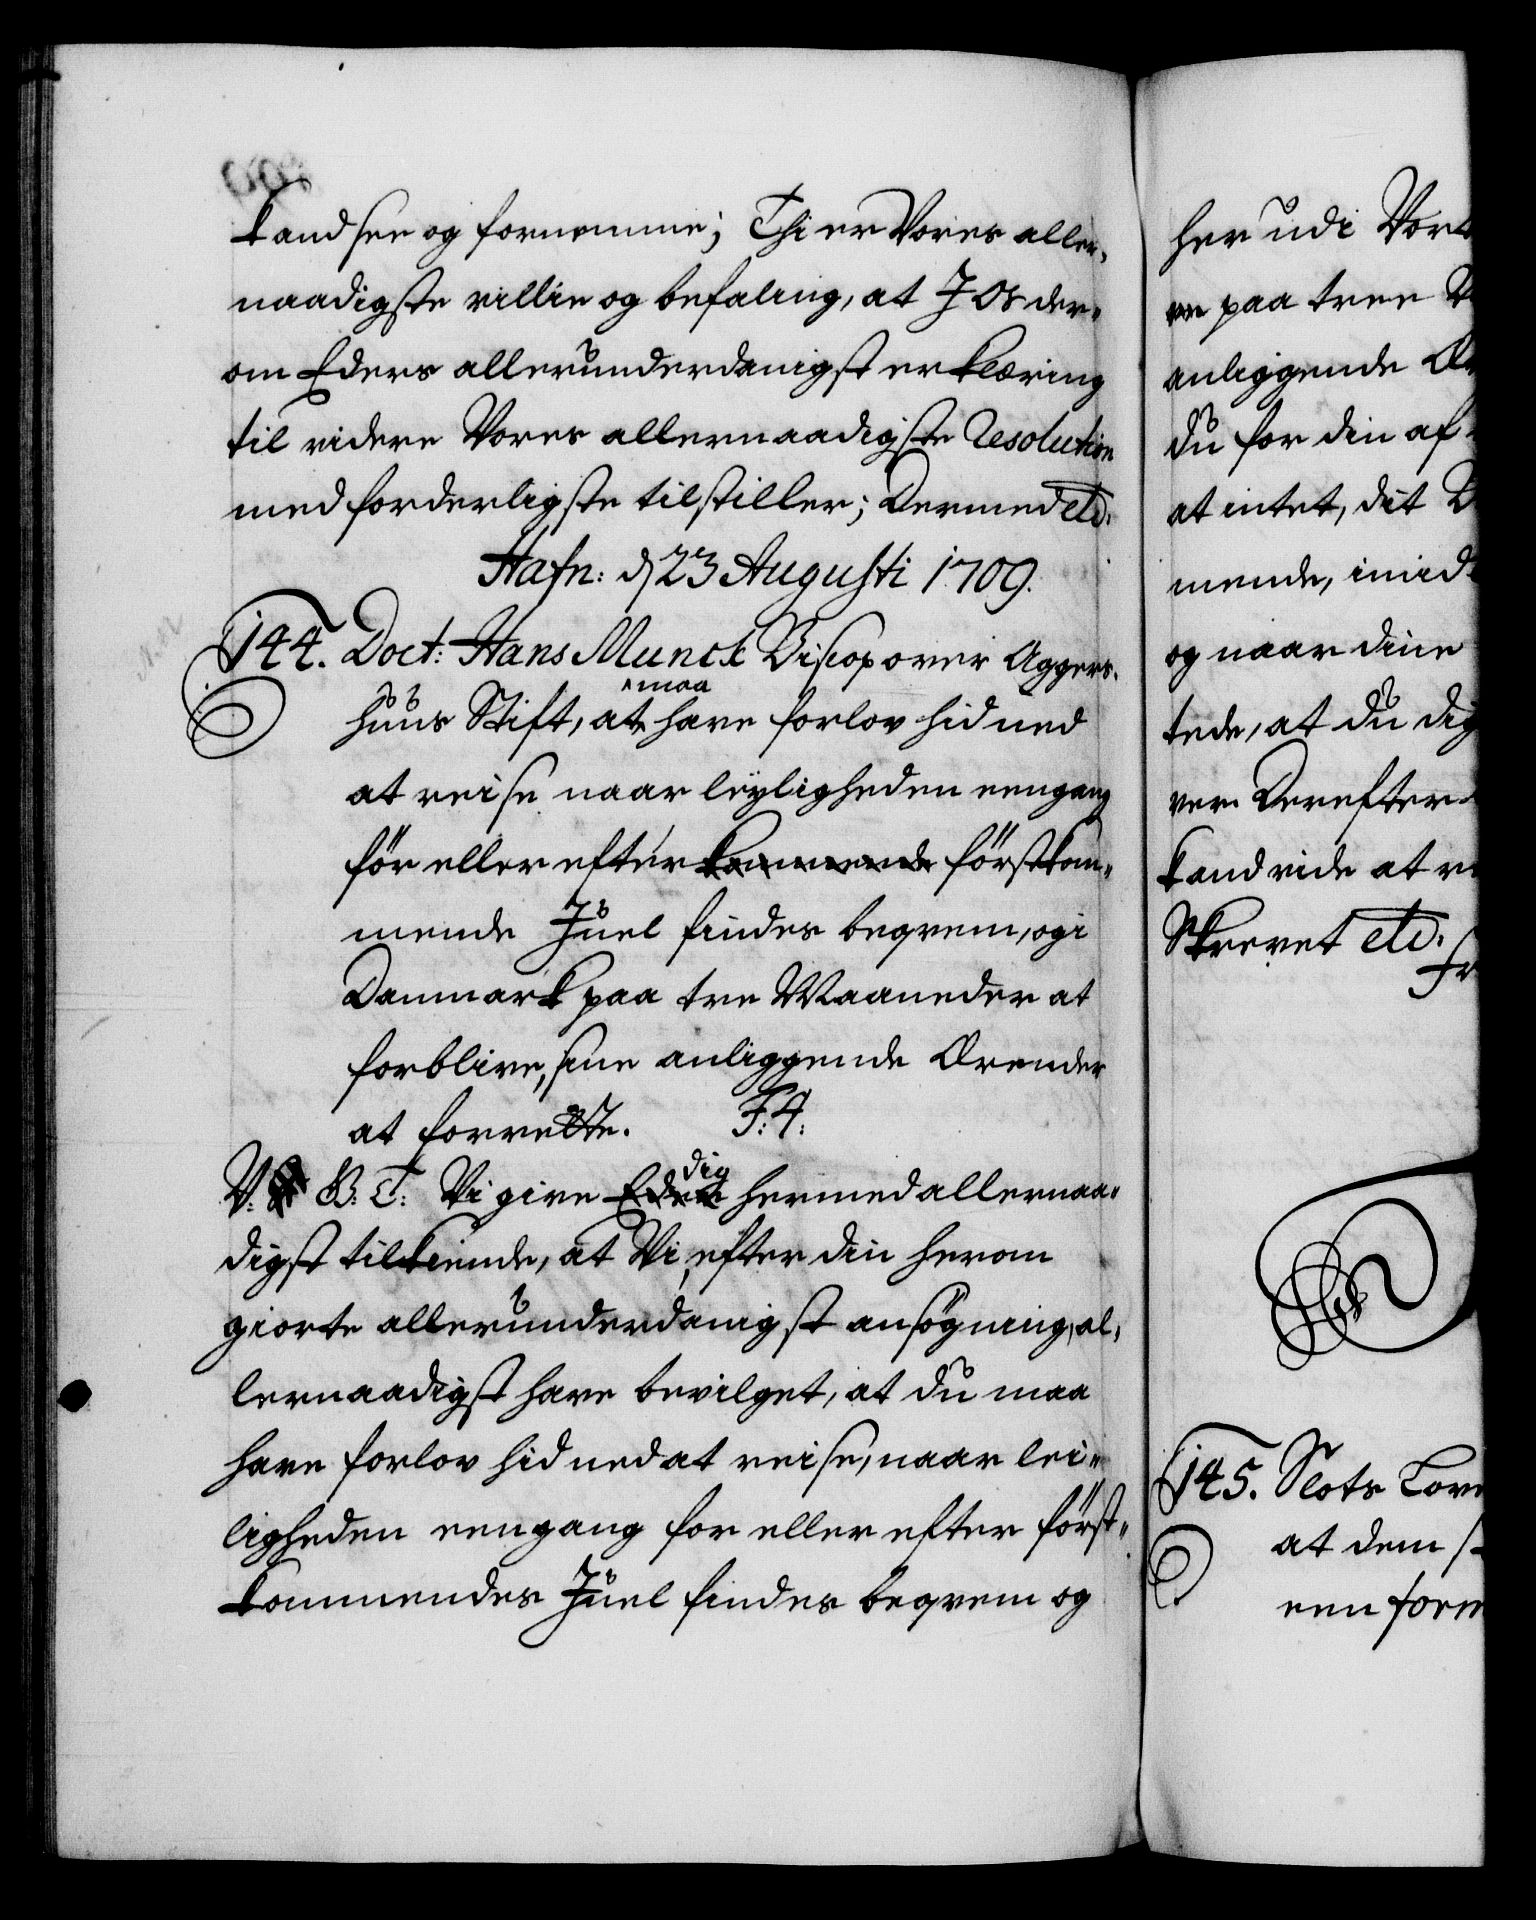 kand see og fornemme; Thi er Vores aller-
naadigste villie og befaling, at I Os der-
om Eders allerunderdanigst erklæring
til videre Vores allernaadigste Resolution
med forderligste tilstiller; Dermed etc.
Hafn: d 23 Augusti 1709.
144. Doct: Hans Munck Biscop over Aggers-
huus Stift, at maa have forlov hid ned
at reise naar leyligheden eengang
før eller efter kommende førstkom-
mende Juel findes beqvem, og i
Danmark paa tre Maaneder at
forblive, sine anliggende Ærender
at forrette. F:4:
V: G: B: T: Vi give Eder dig hermed allernaa-
digst tilkiende, at Vi, efter din herom
giorte allerunderdanigst ansøgning, al-
lernaadigst have bevilget, at du maa
have forlov hid ned at reise, naar lei-
ligheden eengang for eller efter først-
kommendes Juel findes beqvem og
her udi Vort
ve paa tree
anliggende
du for din af
at intet, dit
mende, imid
og naar dine
tede, at du dig
ver Derefter
kand vide at
Skrevet etc.
145. Slots Lov
at dem
een form